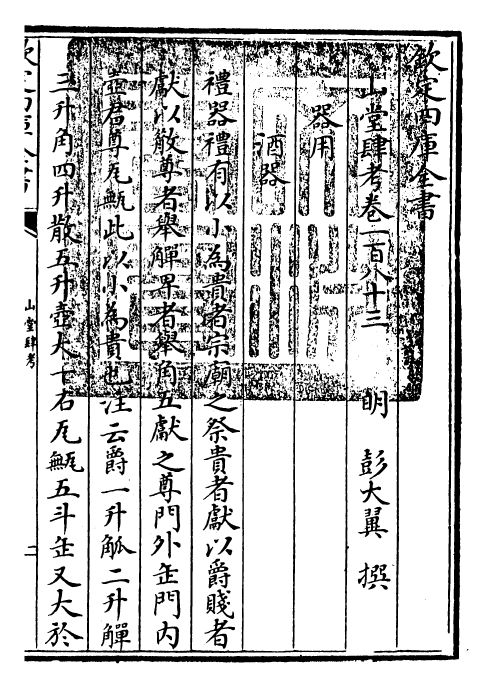 欽定四庫全書
山堂肆考卷一百八十三
明 彭大翼 撰
器用
酒器
禮器禮有以小為貴者宗廟之祭貴者獻以爵賤者
獻以散尊者舉觶卑者舉角五獻之尊門外缶門內
壺君尊瓦甒此以小為貴也注云爵一升觚二升觶
三升角四升散五升壺大一石瓦甒五斗缶又大於
山堂肆考